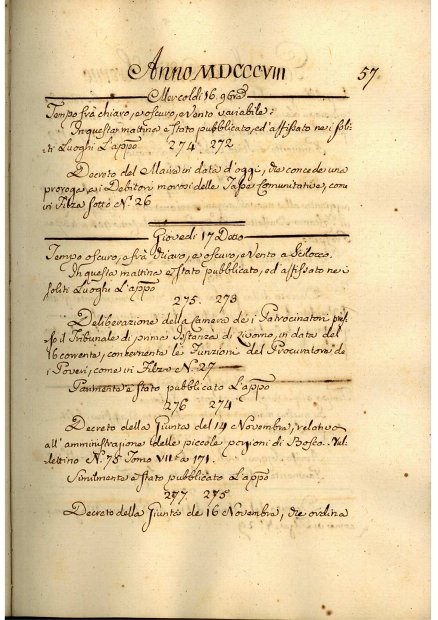 Anno MDCCCVIII
57
Mercoldi 16. 9bre
Tempo frà chiaro, e oscuro, e Vento variabile;
In questa mattina è stato pubblicato, ed' affissato nei soli-
ti Luoghi L'appo
274 272
Decreto del Maire in data d'oggi, che concede una
proroga ai Debitori morosi delle Tasse Comunitative, come
in Filza sotto N. 26
Giovedi 17 Detto
Tempo oscuro, e frà chiaro, e oscuro, e Vento a Scilocco.
In questa mattina è stato pubblicato, ed affissato nei
soliti Luoghi L'appo
275. 273
Deliberazione della Camera de i Patrocinatori pres-
so il Tribunale di prima Istanza di Livorno, in data del
16 corrente, concernente le Funzioni del Procuratore de
i Poveri, come in Filza N. 27
Parimente è stato pubblicato L'appo
276 274
Decreto della Giunta del 14 Novembre, relativo
all'amministrazione delle piccole porzioni di Bosco. Bul-
lettino N. 75 Tomo VII. a 171.
Similmente è stato pubblicato L'appo
277. 275
Decreto della Giunta de 16 Novembre, che ordina